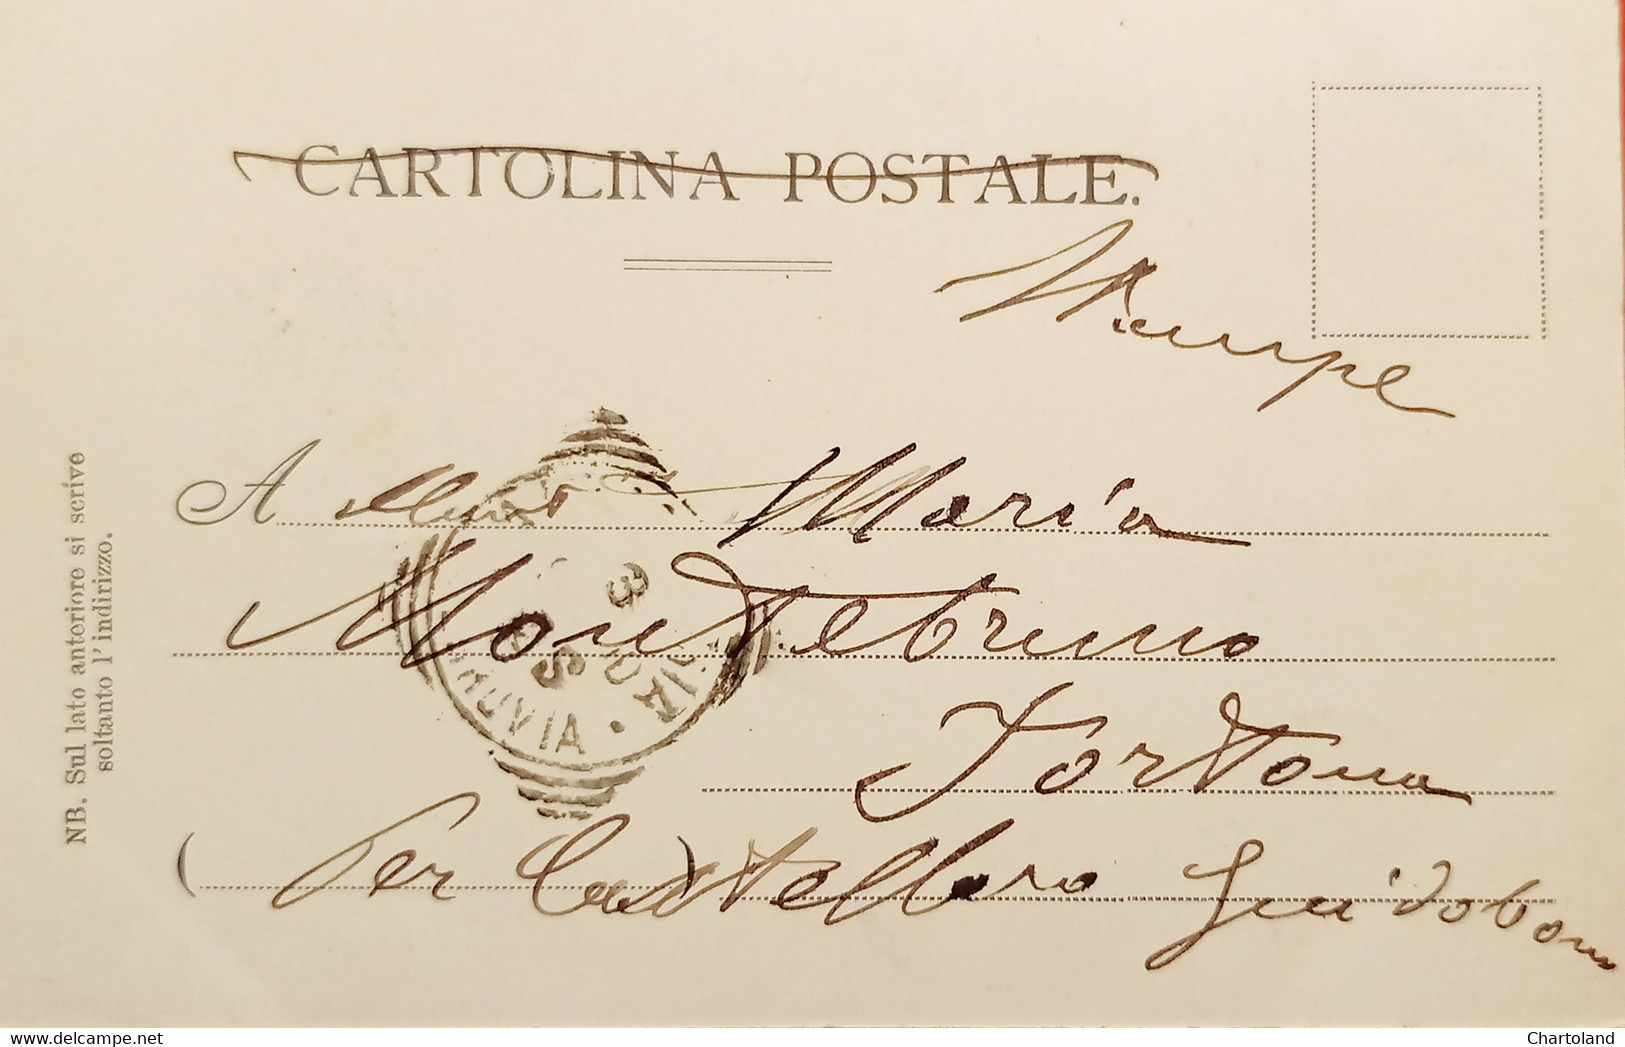 CARTOLINA POSTALE.
Stampe
A Maria
Montebruno
Tortona
(Per Castellaro Guidobono
NB. Sul lato anteriore si scrive
soltanto l'indirizzo.
3
VIA
delcampe.net
Chartoland